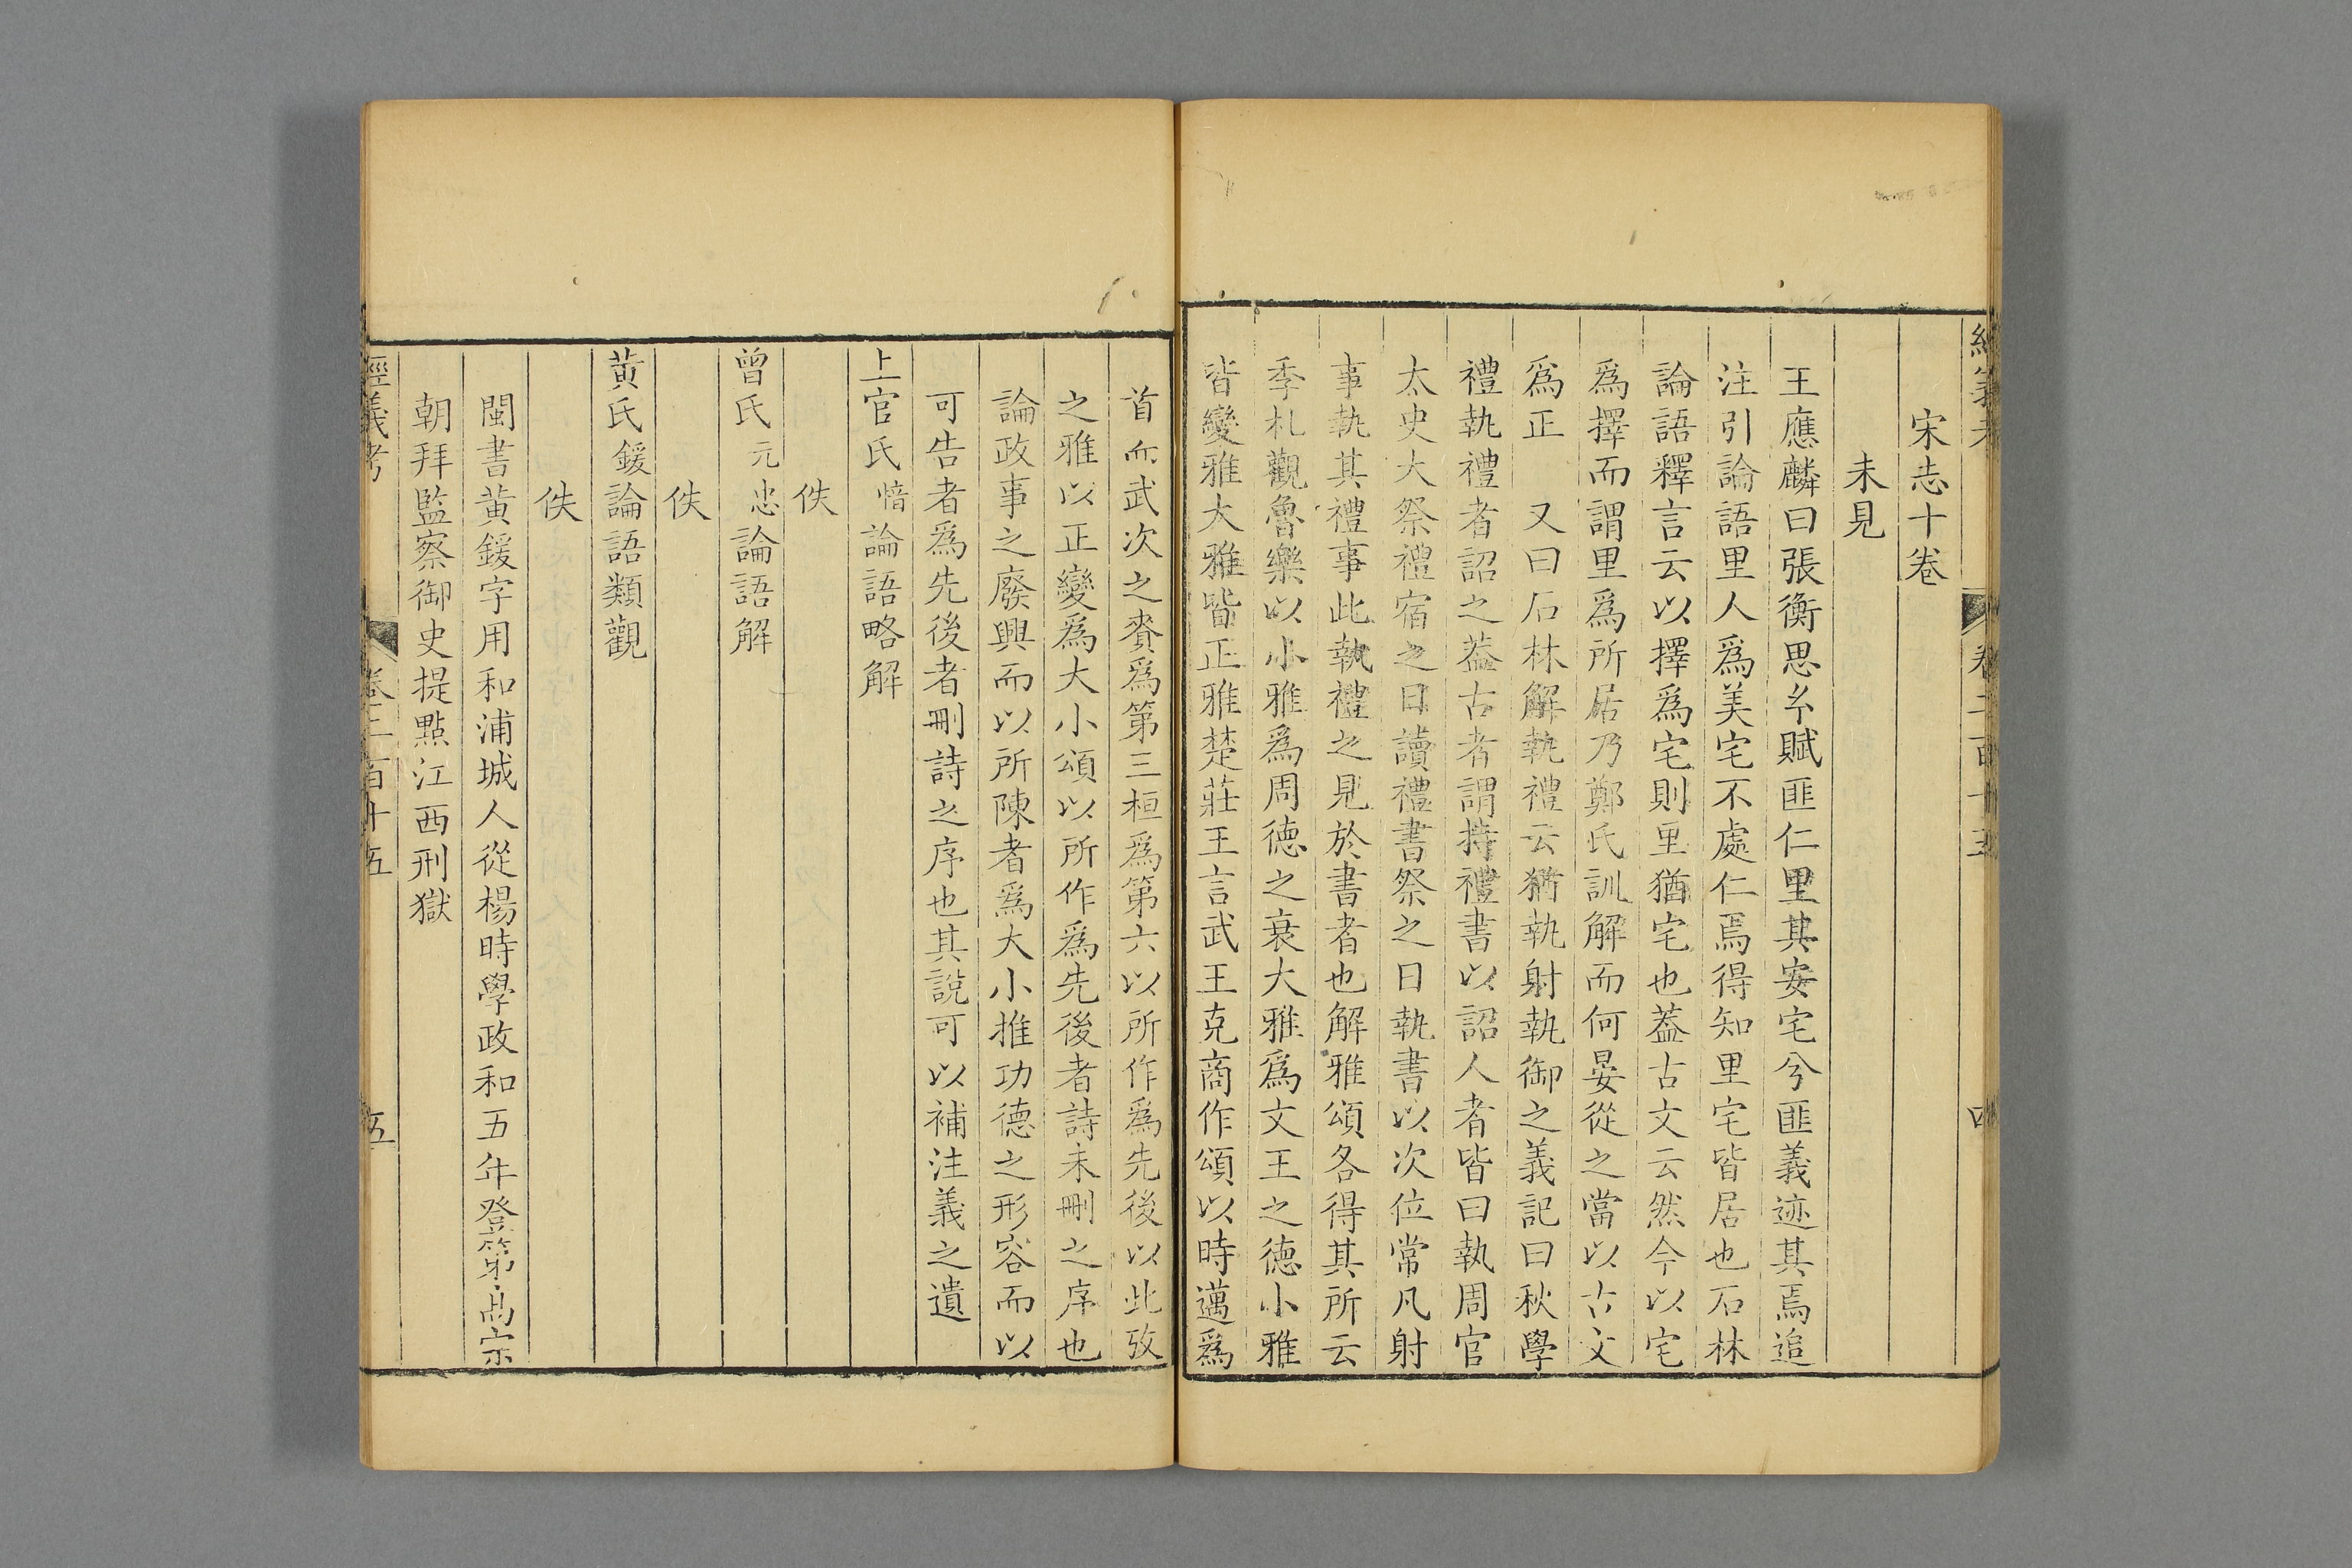 宋志十卷
未見
王應麟曰張衡思𤣥賦匪仁里其安宅兮匪義迹其焉追
注引論語里人爲美宅不處仁焉得知里宅皆居也石林
論語釋言云以擇爲宅則里猶宅也葢古文云然今以宅
爲擇而謂里爲所居乃鄭氏訓解而何晏從之當以古文
爲正 又曰石林解執禮云猶執射執御之義記曰秋學
禮執禮者詔之葢古者謂持禮書以詔人者皆曰執周官
太史大祭禮宿之日讀禮書祭之日執書以次位常凡射
事執其禮事此執禮之見於書者也解雅頌各得其所云
季札觀魯樂以小雅爲周德之衰大雅爲文王之德小雅
皆變雅大雅皆正雅楚莊王言武王克商作頌以時邁爲
首而武次之賚爲第三桓爲第六以所作爲先後以此攷
之雅以正變爲大小頌以所作爲先後者詩未刪之序也
論政事之廢興而以所陳者爲大小推功德之形容而以
可告者爲先後者刪詩之序也其說可以補注義之遺
上官氏愔論語略解
佚
曾氏元忠論語解
佚
黄氏鍰論語類觀
佚
閩書黄鍰字用和浦城人從楊時學政和五年登第高宗
朝拜監察御史提點江西刑獄
經義考 卷二百十五 五